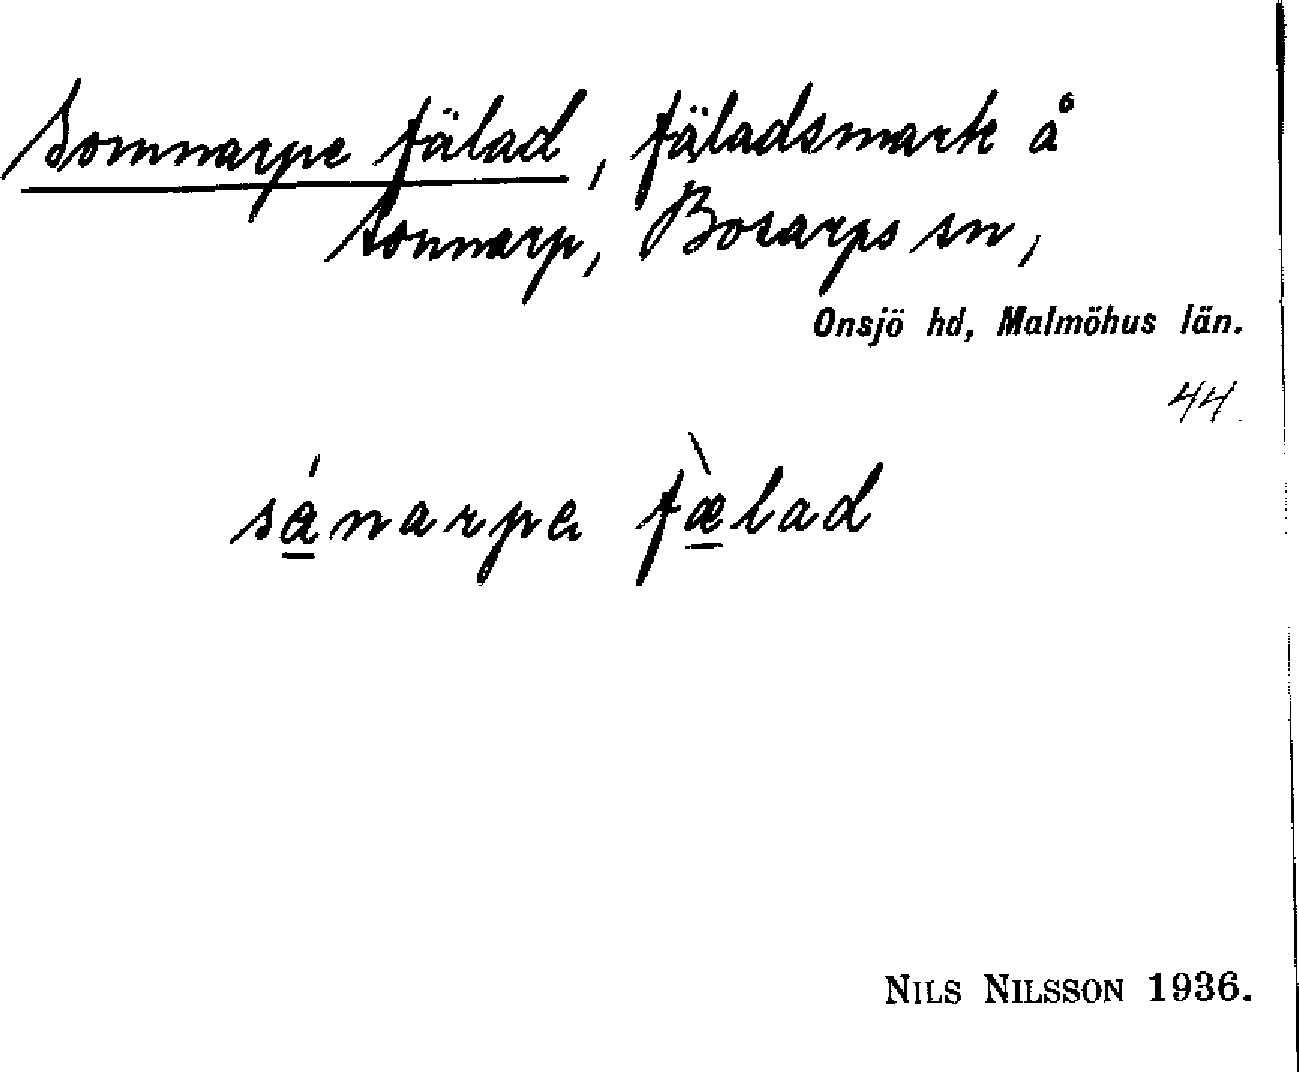 Sonnarpe fälad, fäladsmark å
Sonnarp, Bosarps sn,
Onsjö hd, Malmöhus län.
44.
sánarpa fæ̀lad
NILS NILSSON 1936.